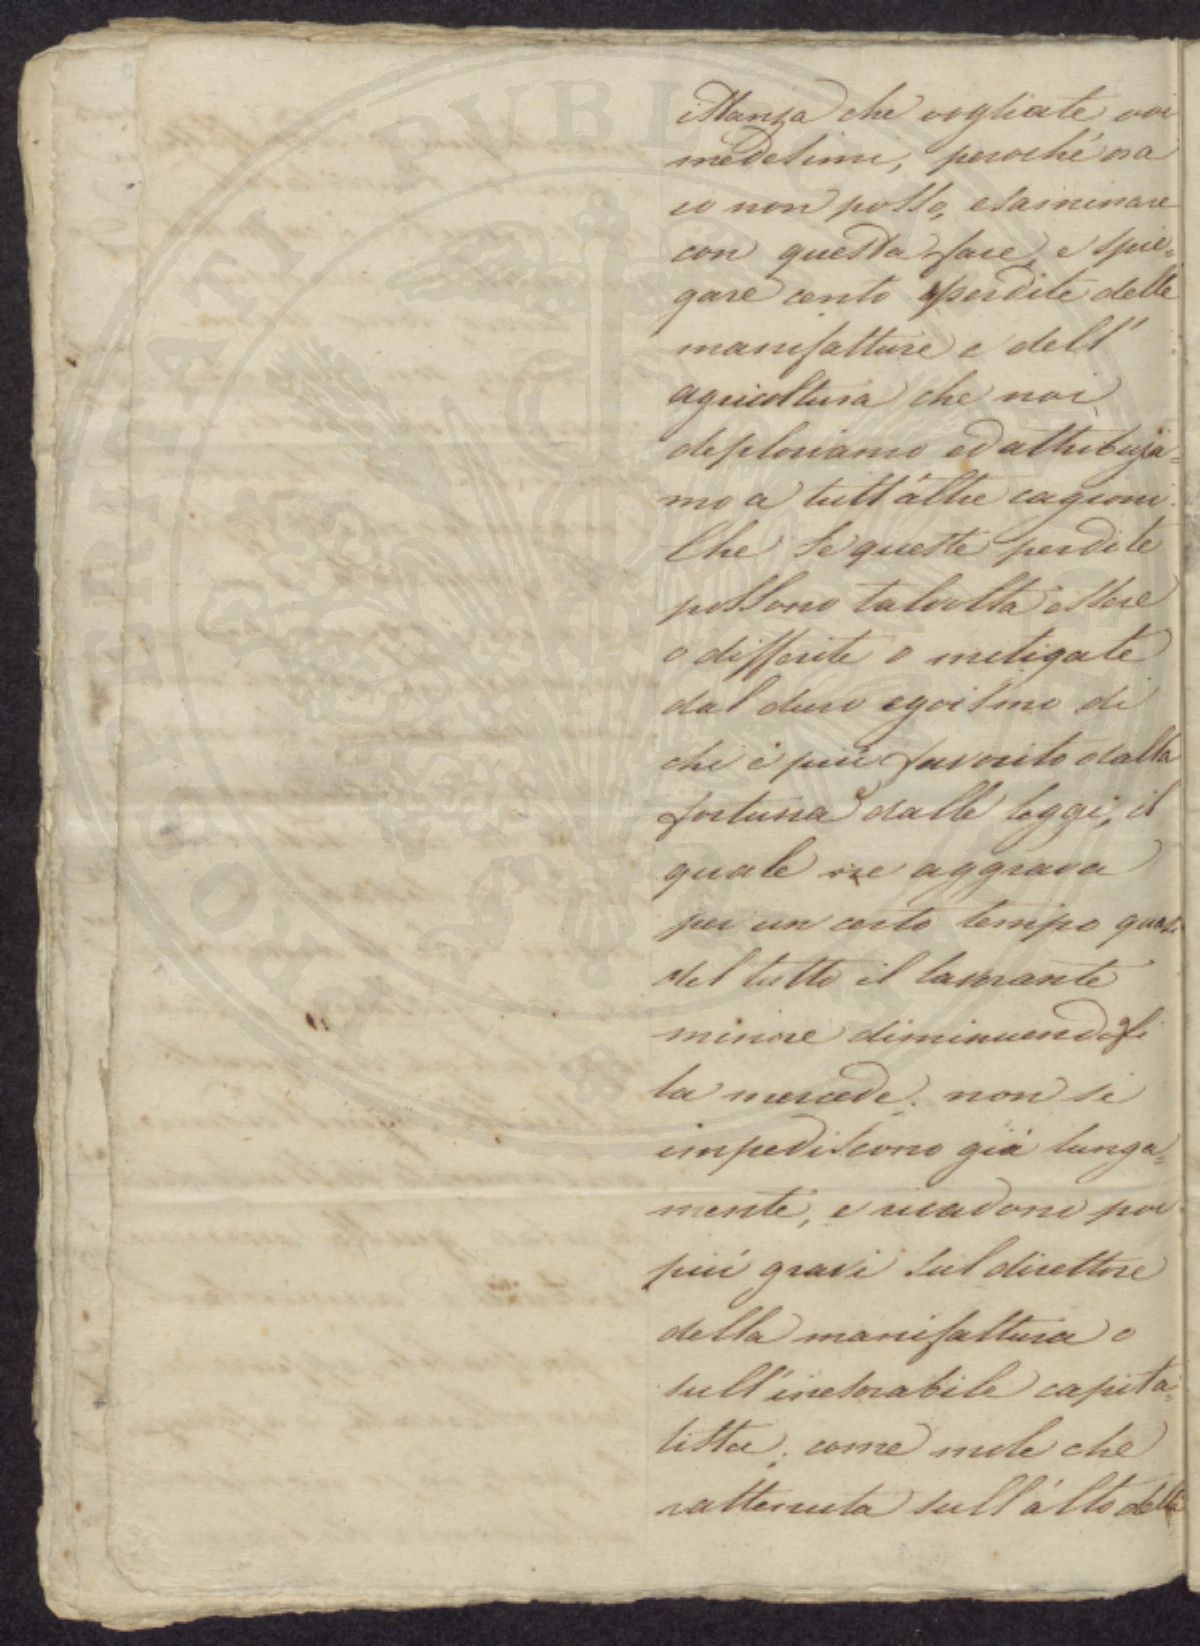 istanza che vogliate voi
medesimi, perochè ora
io non posso, esaminare
con questa face, e spie=
gare cento perdite delle
manifatture e dell'
agricoltura che noi
deploriamo ed attribuja=
mo a tutt'altre cagioni.
Che se queste perdite
possono talvolta essere
o differite o mitigate
dal duro egoismo di
chi è più favorito dalla
fortuna e dalle leggi, il
quale ne aggrava
per un certo tempo quasi
del tutto il lavorante
minore diminuendogli
la mercede, non si
impediscono già lunga=
mente, e ricadono poi
più gravi sul direttore
della manifattura o
sull'inesorabile capita=
lista, come mole che
rattenuta sull'alto della
PROSPERITATI PUBLICAE